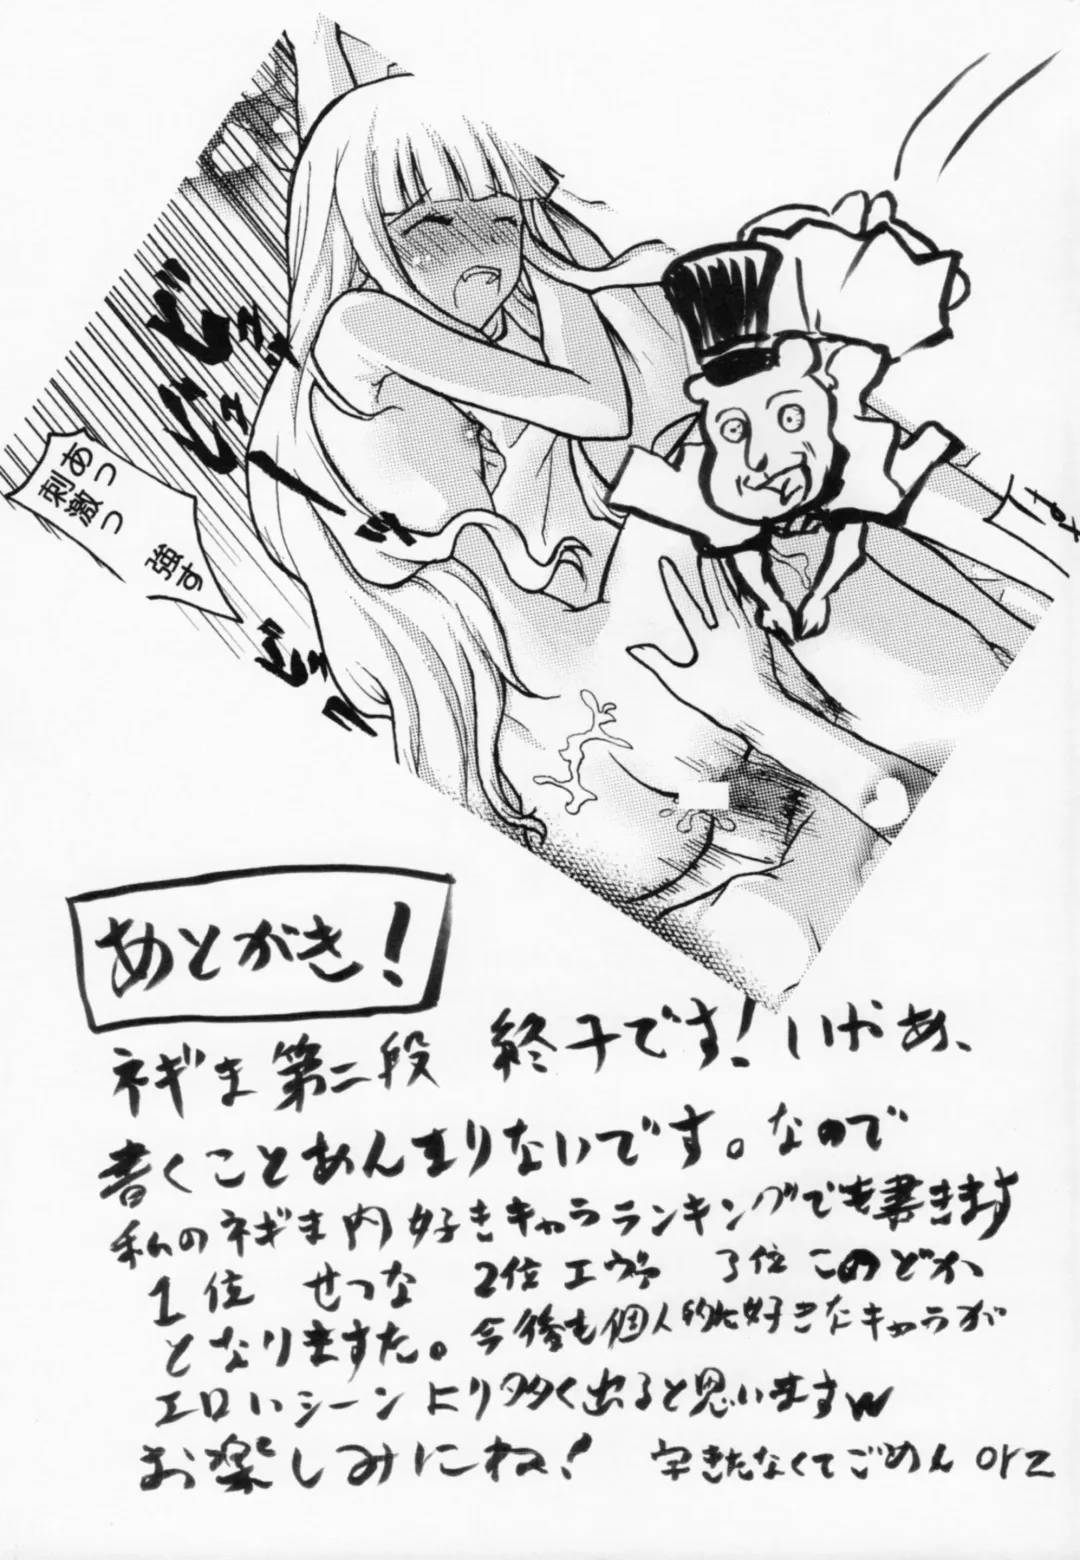 あっ
刺激っ
強す
ビュッ
ビュビューッ
ビュッ
ク
あとがき！
ネギま第二段 終了です！いやぁ、
書くことあんまりないです。なので
私のネギま内好きキャラランキングでも書きます
1位 せつな 2位 エヴァ 3位 このどか
となりますた。今後も個人的に好きなキャラが
エロいシーンより多く出ると思いますw
お楽しみにね！ 字きたなくてごめん orz